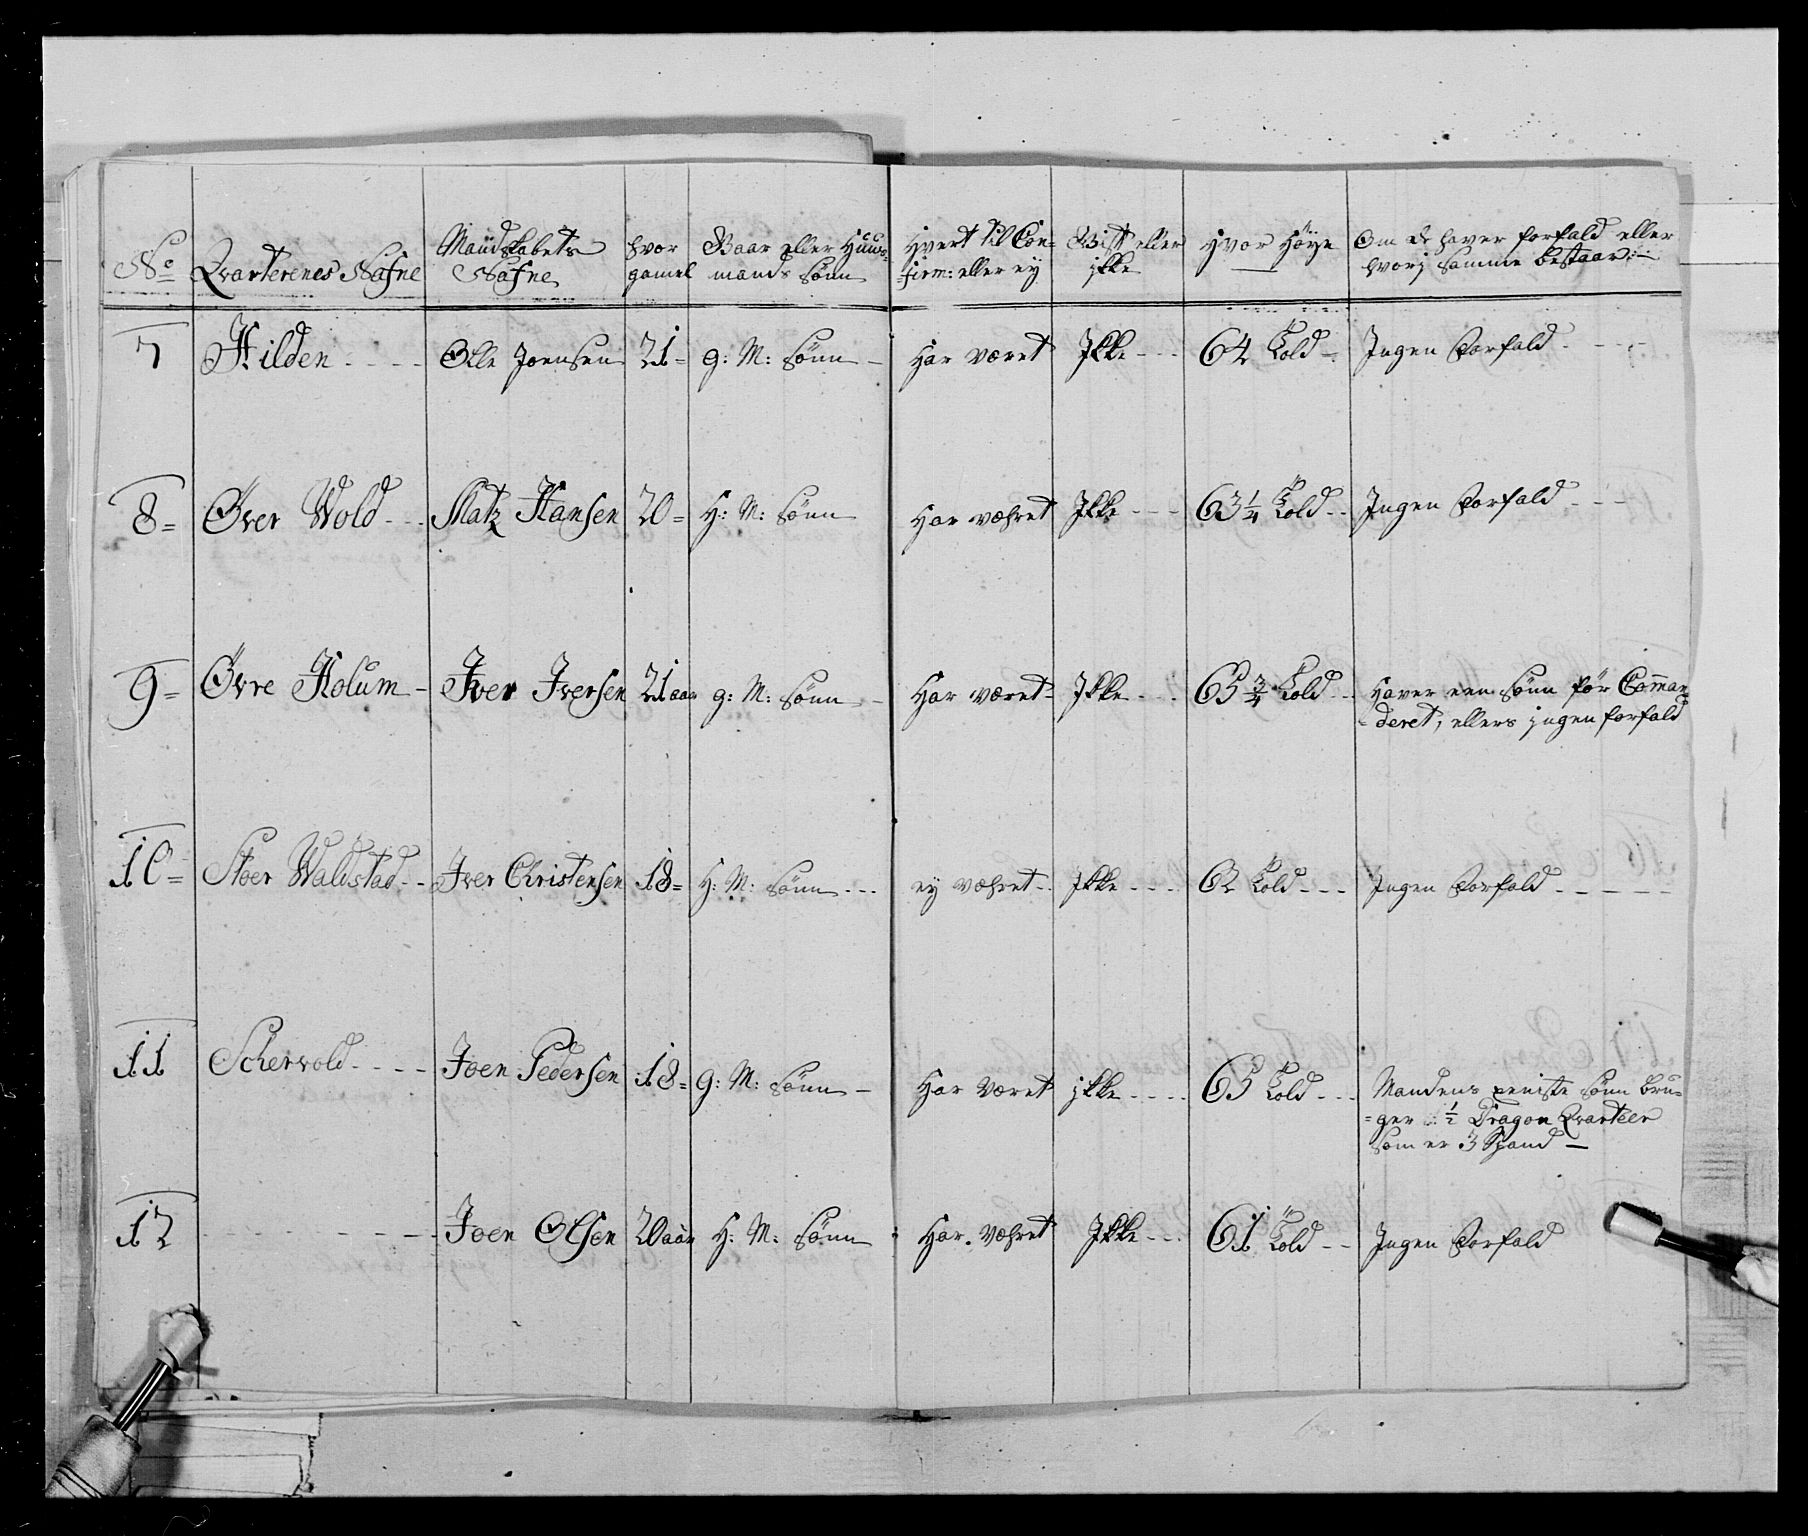 No Qvarterenes Nafne Mandskabets Nafne hvor gamel Baar eller Huus-mands Sønn Hvert til Con-firm: eller ey Gift eller ikke Hvor Høye Om de haver forfald eller hvorj samme bestaar:
7 Hilden Olle Joensen 21 G: M: Sønn Har været Ikke 64 Told Ingen Forfald
8 Øver Wold Matz Hansen 20 H: M: Sønn Har væhret Ikke 63 1/4 Told Ingen Forfald
9 Øvre Holum Iver Iversen 21 aar G: M: Sønn Har været Ikke 65 3/4 Told Haver een Sønn før Comman-
deret, ellers jngen forfald
10 Stoer Waldstad Iver Christensen 18 H: M: Sønn ey væhret Ikke 62 Told Ingen Forfald
11 Schervold Joen Pedersen 18 G: M: Sønn Har Været jkke 65 Told Mandens eeniste Sønn bru-
ger 1/2 Dragon Qvarteer
som er 3 Spand
12 Joen Olsen 20 aar H: M: Sønn Har Væhret Ikke 61 Told Ingen Forfald